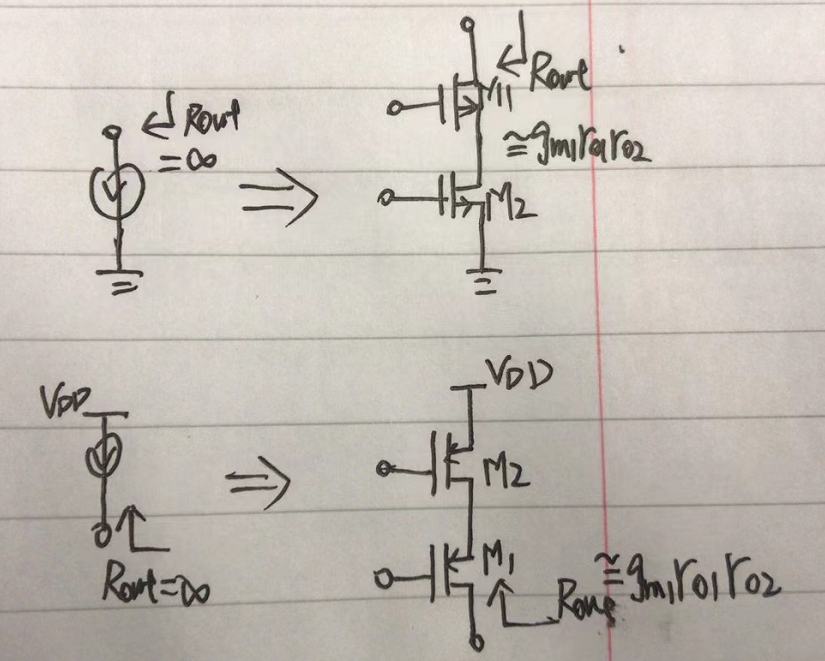 Rout
Rout
= ∞
M1
≅ gm1ro1ro2
M2
VDD
VDD
M2
M1
Rout ≅ gm1ro1ro2
Rout = ∞